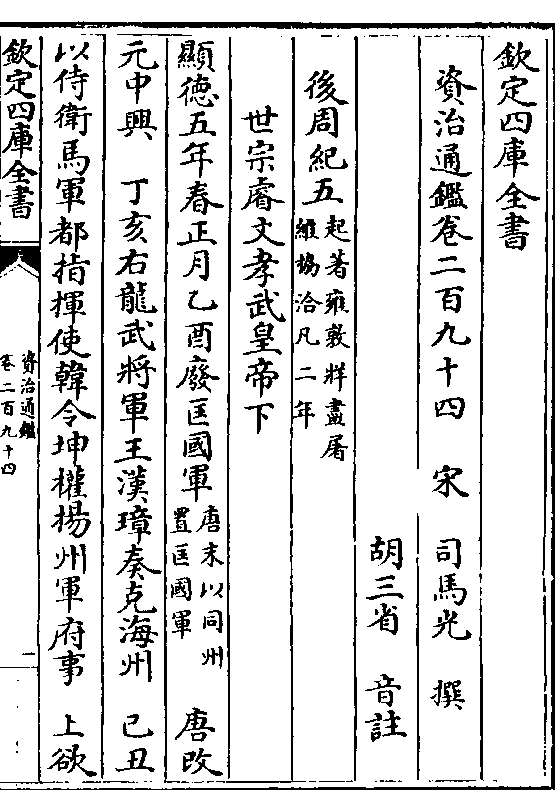 欽定四庫全書
資治通鑑卷二百九十四　宋　司馬光　撰
胡三省　音註
後周紀五起著雍敦牂盡屠
維協洽凡二年
世宗睿文孝武皇帝下
顯德五年春正月乙酉廢匡國軍唐末以同州
置匡國軍　唐改
元中興　丁亥右龍武將軍王漢璋奏克海州　己丑
以侍衛馬軍都指揮使韓令坤權揚州軍府事　上欲
欽定四庫全書
資治通鑑
卷二百九十四
一